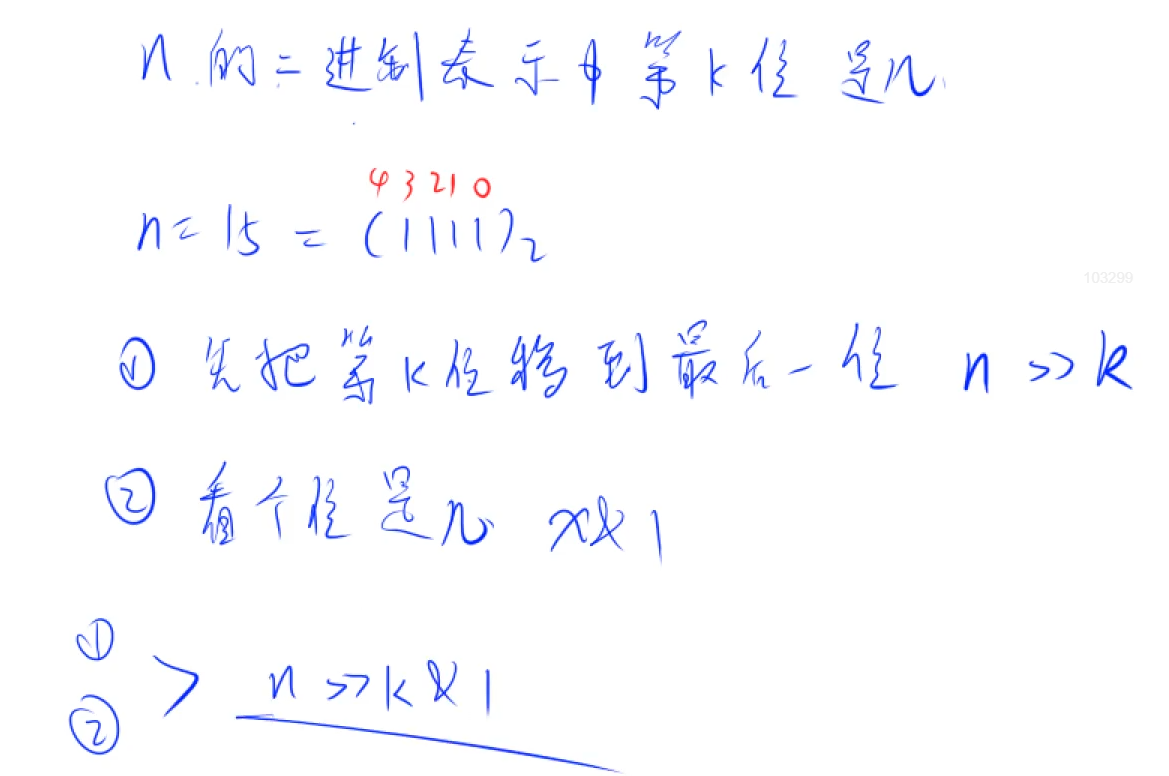 n的二进制表示中第k位是几
4 3 2 1 0
n = 15 = (1111)₂
103299
① 先把第k位移到最后一位 n >> k
② 看个位是几 x&1
①
② > n >> k & 1